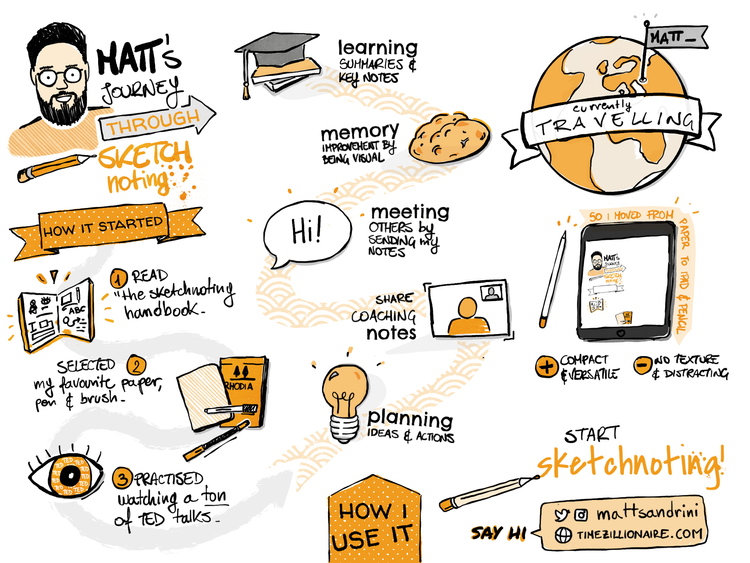 MATT'S
JOURNEY
THROUGH
SKETCH
noting
HOW IT STARTED
1 READ
"the sketchnoting
handbook_
ABC
SELECTED 2
my favourite paper,
pen & brush_
RHODIA
3 PRACTISED
watching a ton
of TED talks_
learning
SUMMARIES &
KEY NOTES
memory
IMPROVEMENT BY
BEING VISUAL
Hi!
meeting
OTHERS by
SENDING my
NOTES
SHARE
COACHING
notes
planning
IDEAS & ACTIONS
HOW I
USE IT
MATT_
currently
TRAVELLING
SO I MOVED FROM
PAPER TO IPAD & PENCIL
MATT'S
JOURNEY
THROUGH
SKETCH
noting
+ COMPACT
& VERSATILE
- NO TEXTURE
& DISTRACTING
START
sketchnoting!
SAY HI
mattsandrini
TIMEZILLIONAIRE.COM